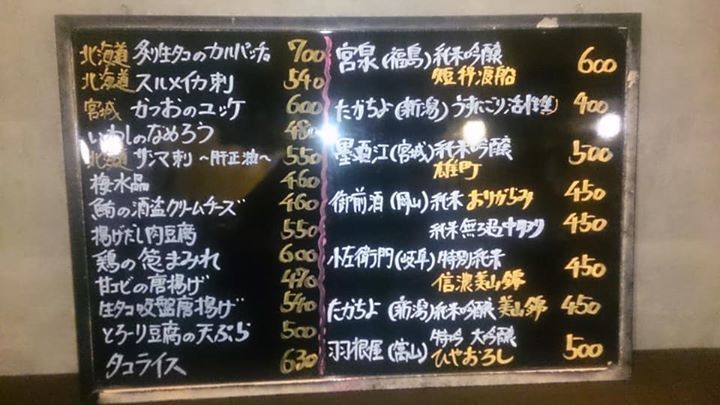 北海道 炙り生タコのカルパッチョ 700
北海道 スルメイカ刺 540
宮城 かつおのユッケ 600
いわしのなめろう 480
北海道 サンマ刺 〜肝正油〜 550
梅水晶 460
鮪の酒盗クリームチーズ 460
揚げだし肉豆腐 550
鶏の葱まみれ 600
甘エビの唐揚げ 470
生タコ吸盤唐揚げ 540
とろーり豆腐の天ぷら 500
タコライス 630
宮泉(福島)純米吟醸 600
短稈渡船
たかちよ(新潟)うすにごり活性 400
墨廼江(宮城)純米吟醸 500
雄町
御前酒(岡山)純米 おりがらみ 450
純米無ろ過 中取り 450
小左衛門(岐阜)特別純米 450
信濃美山錦
たかちよ(新潟)純米吟醸 美山錦 450
羽根屋(富山)特吟 大吟醸 500
ひやおろし